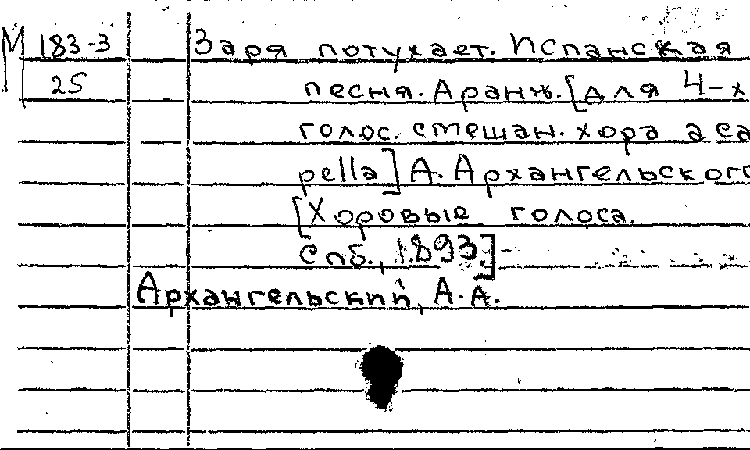 М 183-3 Заря потухает. Испанская
25 песня. Аранж. [для 4-х
голос. смешан. хора a ca
pella] А. Архангельского
[Хоровые голоса.
Спб., 1893]-
Архангельский, А. А.